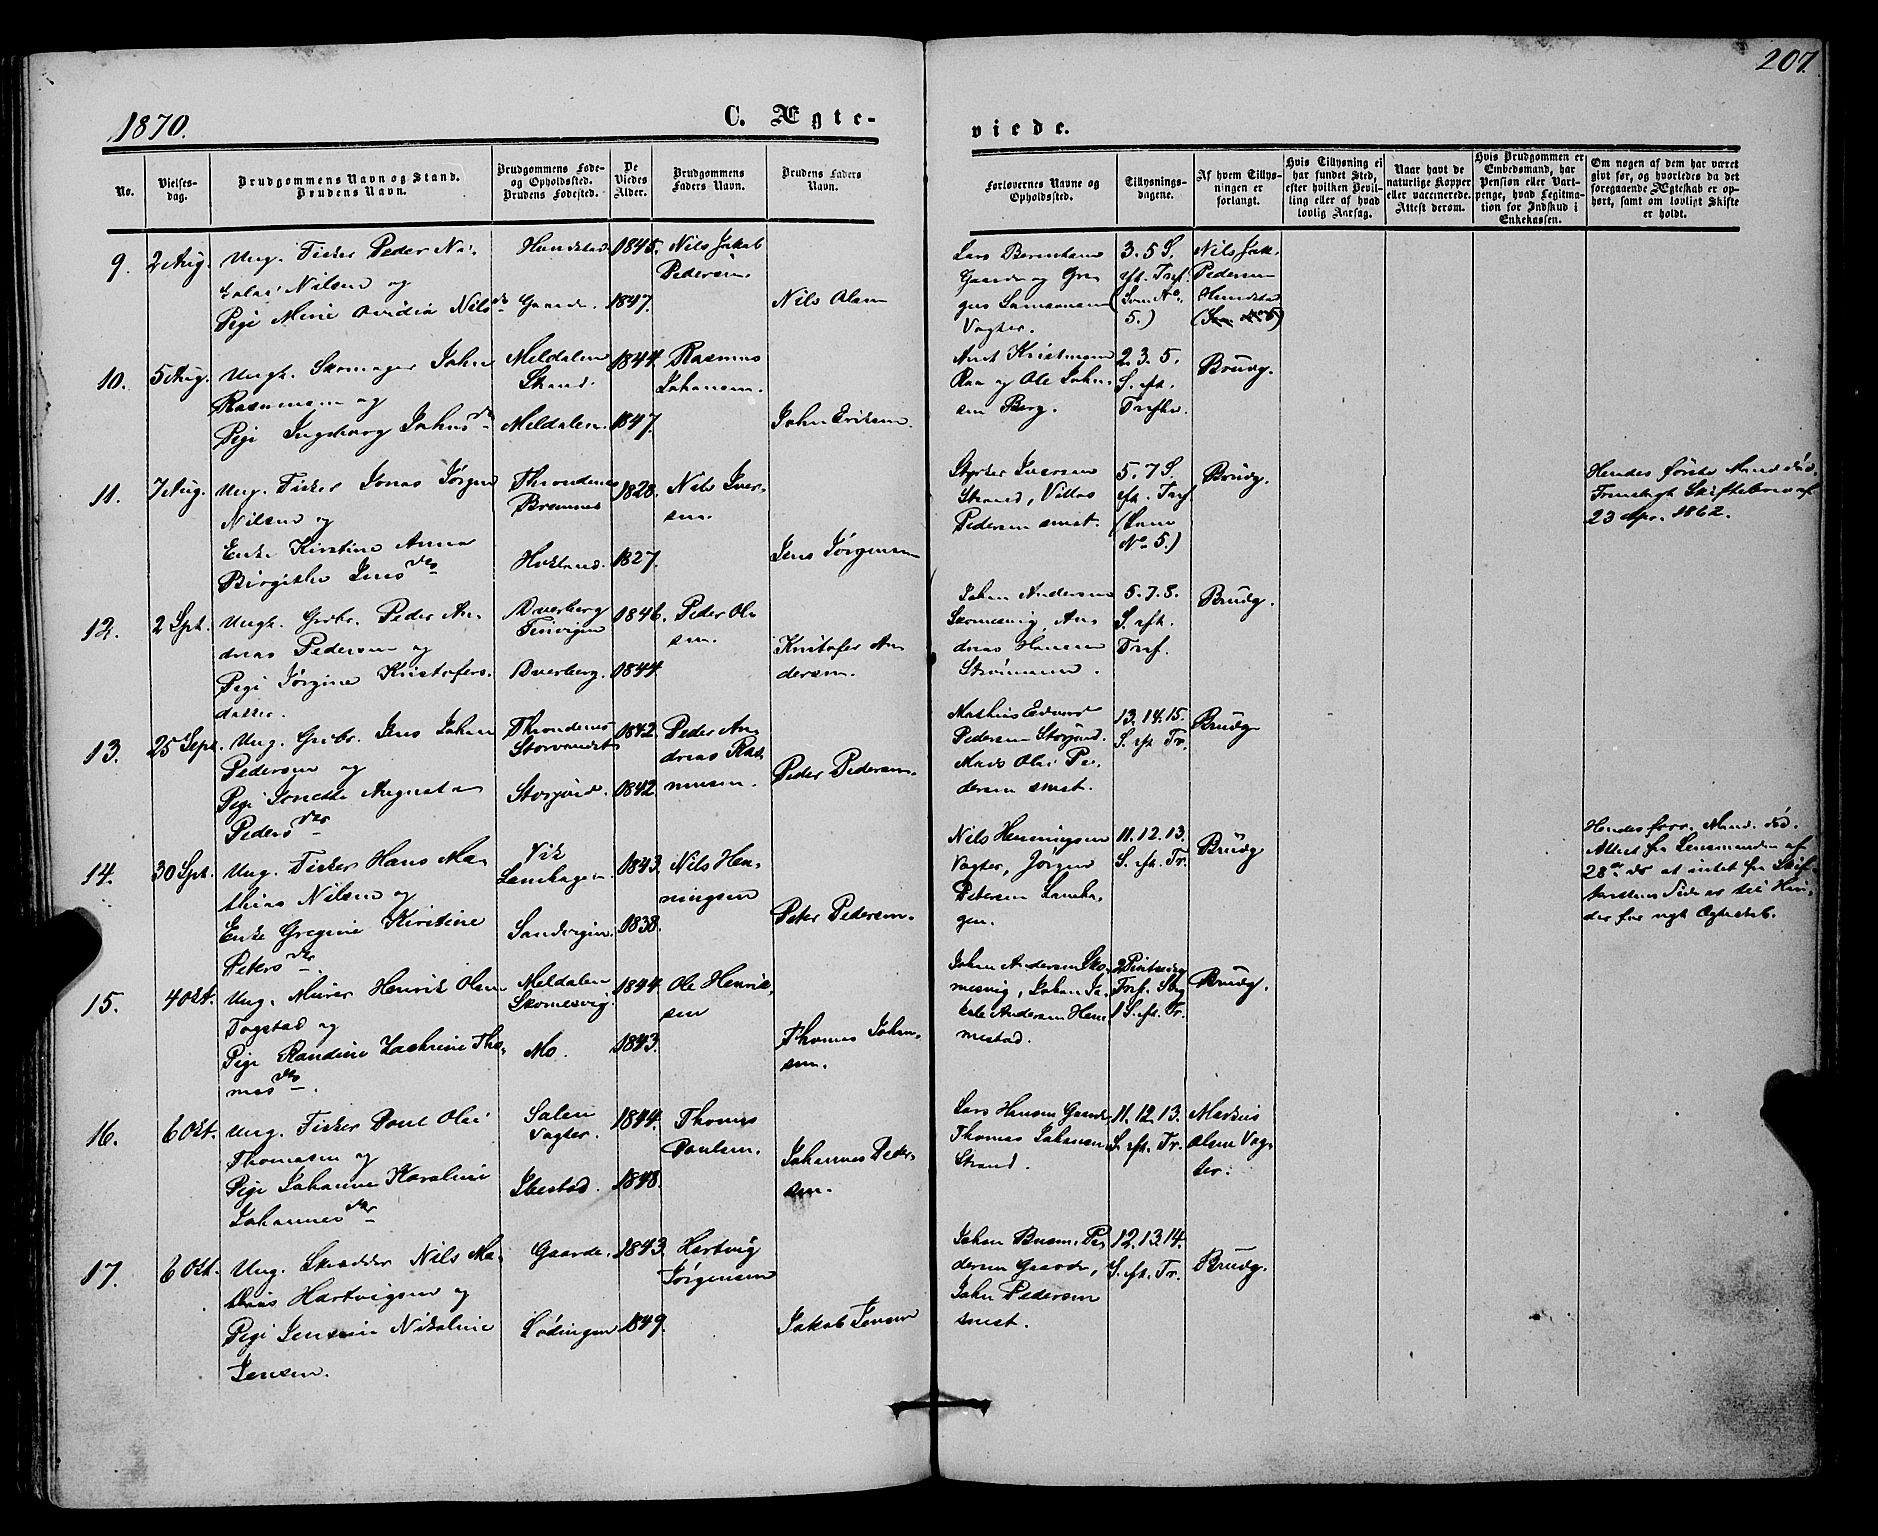 207.
1870.
C. Ægte-
viede.
No.
Vielses-
dag.
Brudgommens Navn og Stand.
Brudens Navn.
Brudgommens Føde-
og Opholdssted.
Brudens Fødested.
De
Viedes
Alder.
Brudgommens
Faders Navn.
Brudens Faders
Navn.
Forlovernes Navne og
Opholdssted.
Tillysnings-
dagene.
Af hvem Tillys-
ningen er
forlangt.
Hvis Tillysning ei
har fundet Sted,
efter hvilken Bevil-
ling eller af hvad
lovlig Aarsag.
Naar havt de
naturlige Kopper
eller vaccinerede.
Attest derom.
Hvis Brudgommen er
Embedsmand, har
Pension eller Vart-
penge, hvad Legitima-
tion for Indskud i
Enkekassen.
Om nogen af dem har været
givt før, og hvorledes da det
foregaaende Ægteskab er op-
hørt, samt om lovligt Skifte
er holdt.
9. 2 Aug. Ung. Fisker Peder Ni-
Nilsen og
Pige Mine Ovidia Nilsdr
Hundstad 1845. Nils Jakob
Pedersen.
Gaarde. 1847. Nils Olsen
Lars Berenthsen
Gaarde og
Vagter.
3. 5 S.
eft. Tref.
(Som No.
5.)
Nils Jak.
Pedersen
Hundstad
(Som No 5)
10. 5 Aug. Ungk. Skomager Johan
Rasmussen og
Pige Ingeborg Johnsdr
Meldalen
Strand. 1844. Rasmus
Johansen.
Meldalen. 1847. John Eriksen.
Arnt Kristensen
Raa og Ole John-
sen Berg.
2. 3. 5.
S. eft.
Trefho.
Brudg.
11. 7 Aug. Ung. Fisker Jonas Jørgen
Nilsen og
Enke Kirstine Anna
Birgithe Jensdr
Throndenes
Bremnes 1828. Nils Iver-
sen.
Hokland. 1827. Jens Jørgensen
Styrker Iversen
Strand, Villas
Pedersen smst.
5. 7 S.
eft. Tref
(Som
No 5.)
Brudg.
Hendes første Mand død.
Fremlagt Skiftebrev af
23 Apr. 1862.
12. 2 Spt. Ungk. Grbr. Peder An-
dreas Pedersen og
Pige Jørgine Kristofers-
datter.
Dverberg
1846. Peder Ol-
sen.
Dverberg. 1844. Kristofer An-
dersen.
Johan Andersen
Skomesvig, An-
dreas Hansen
Strømmen.
5. 7. 8.
S. eft.
Tref.
Brudg.
13. 25 Sept. Ung. Grbr. Jens Johan
Pedersen og
Pige Jonette Augusta
Pedersdr
Throndenes
Storvandet 1842. Peder An-
dreas Ras-
mussen.
Storjord. 1842. Peder Pedersen.
Mathias Edvard
Pedersen Storjord.
Mads Olai Pe-
dersen smst.
13. 14. 15.
S. eft. Tr.
Brudg
14. 30 Spt. Ung. Fisker Hans Ma-
thias Nilsen og
Enke Gregine Kirstine
Petersdr
Vik
Lanehagen. 1843. Nils Hen-
ningsen
Sandvigen. 1838. Peter Pedersen.
Nils Henningsen
Vagter, Jørgen
Petersen Laneha-
gen.
11. 12. 13.
S. eft. Tr.
Brudg
Hendes forr. Mand død.
Attest fra Lensmanden af
28de ds at intet fra Skif-
terettens Side er til Hin-
der for nyt Ægteskab.
15. 4 Okt. Ung. Murer Henrik Olsen
Fogstad og
Pige Randine Zachrine Tho-
masdr.
Meldalen
Skomesvig. 1844. Ole Henrik-
sen
Mo. 1843. Thomas John-
sen.
Johan Andersen Sko-
mesvig, Johan Ja-
kob Andersen Hem-
mestad.
1 S. eft. Tr.
Brudg.
16. 6 Okt. Ung. Fisker Poul Olai
Thomasen og
Pige Johanne Karoline
Johannesdr
Salen
Vagter. 1844. Thomas
Paulsen.
Ibestad. 1848. Johannes Peder-
sen.
Lars Hansen Gaarde
Thomas Johansen
Strand.
11. 12. 13.
S. eft. Tr.
Markus
Olsen Vag-
ter.
17. 6 Okt. Ung. Skrædder Nils Ma-
thias Hartvigsen og
Pige Jensine Nikoline
Jensen.
Gaarde. 1843. Hartvig
Jørgensen
Lødingen 1849. Jakob Jensen
Johan Pe-
dersen Gaarde,
John Pedersen
smst.
12. 13. 14.
S. eft. Tr.
Brudg.